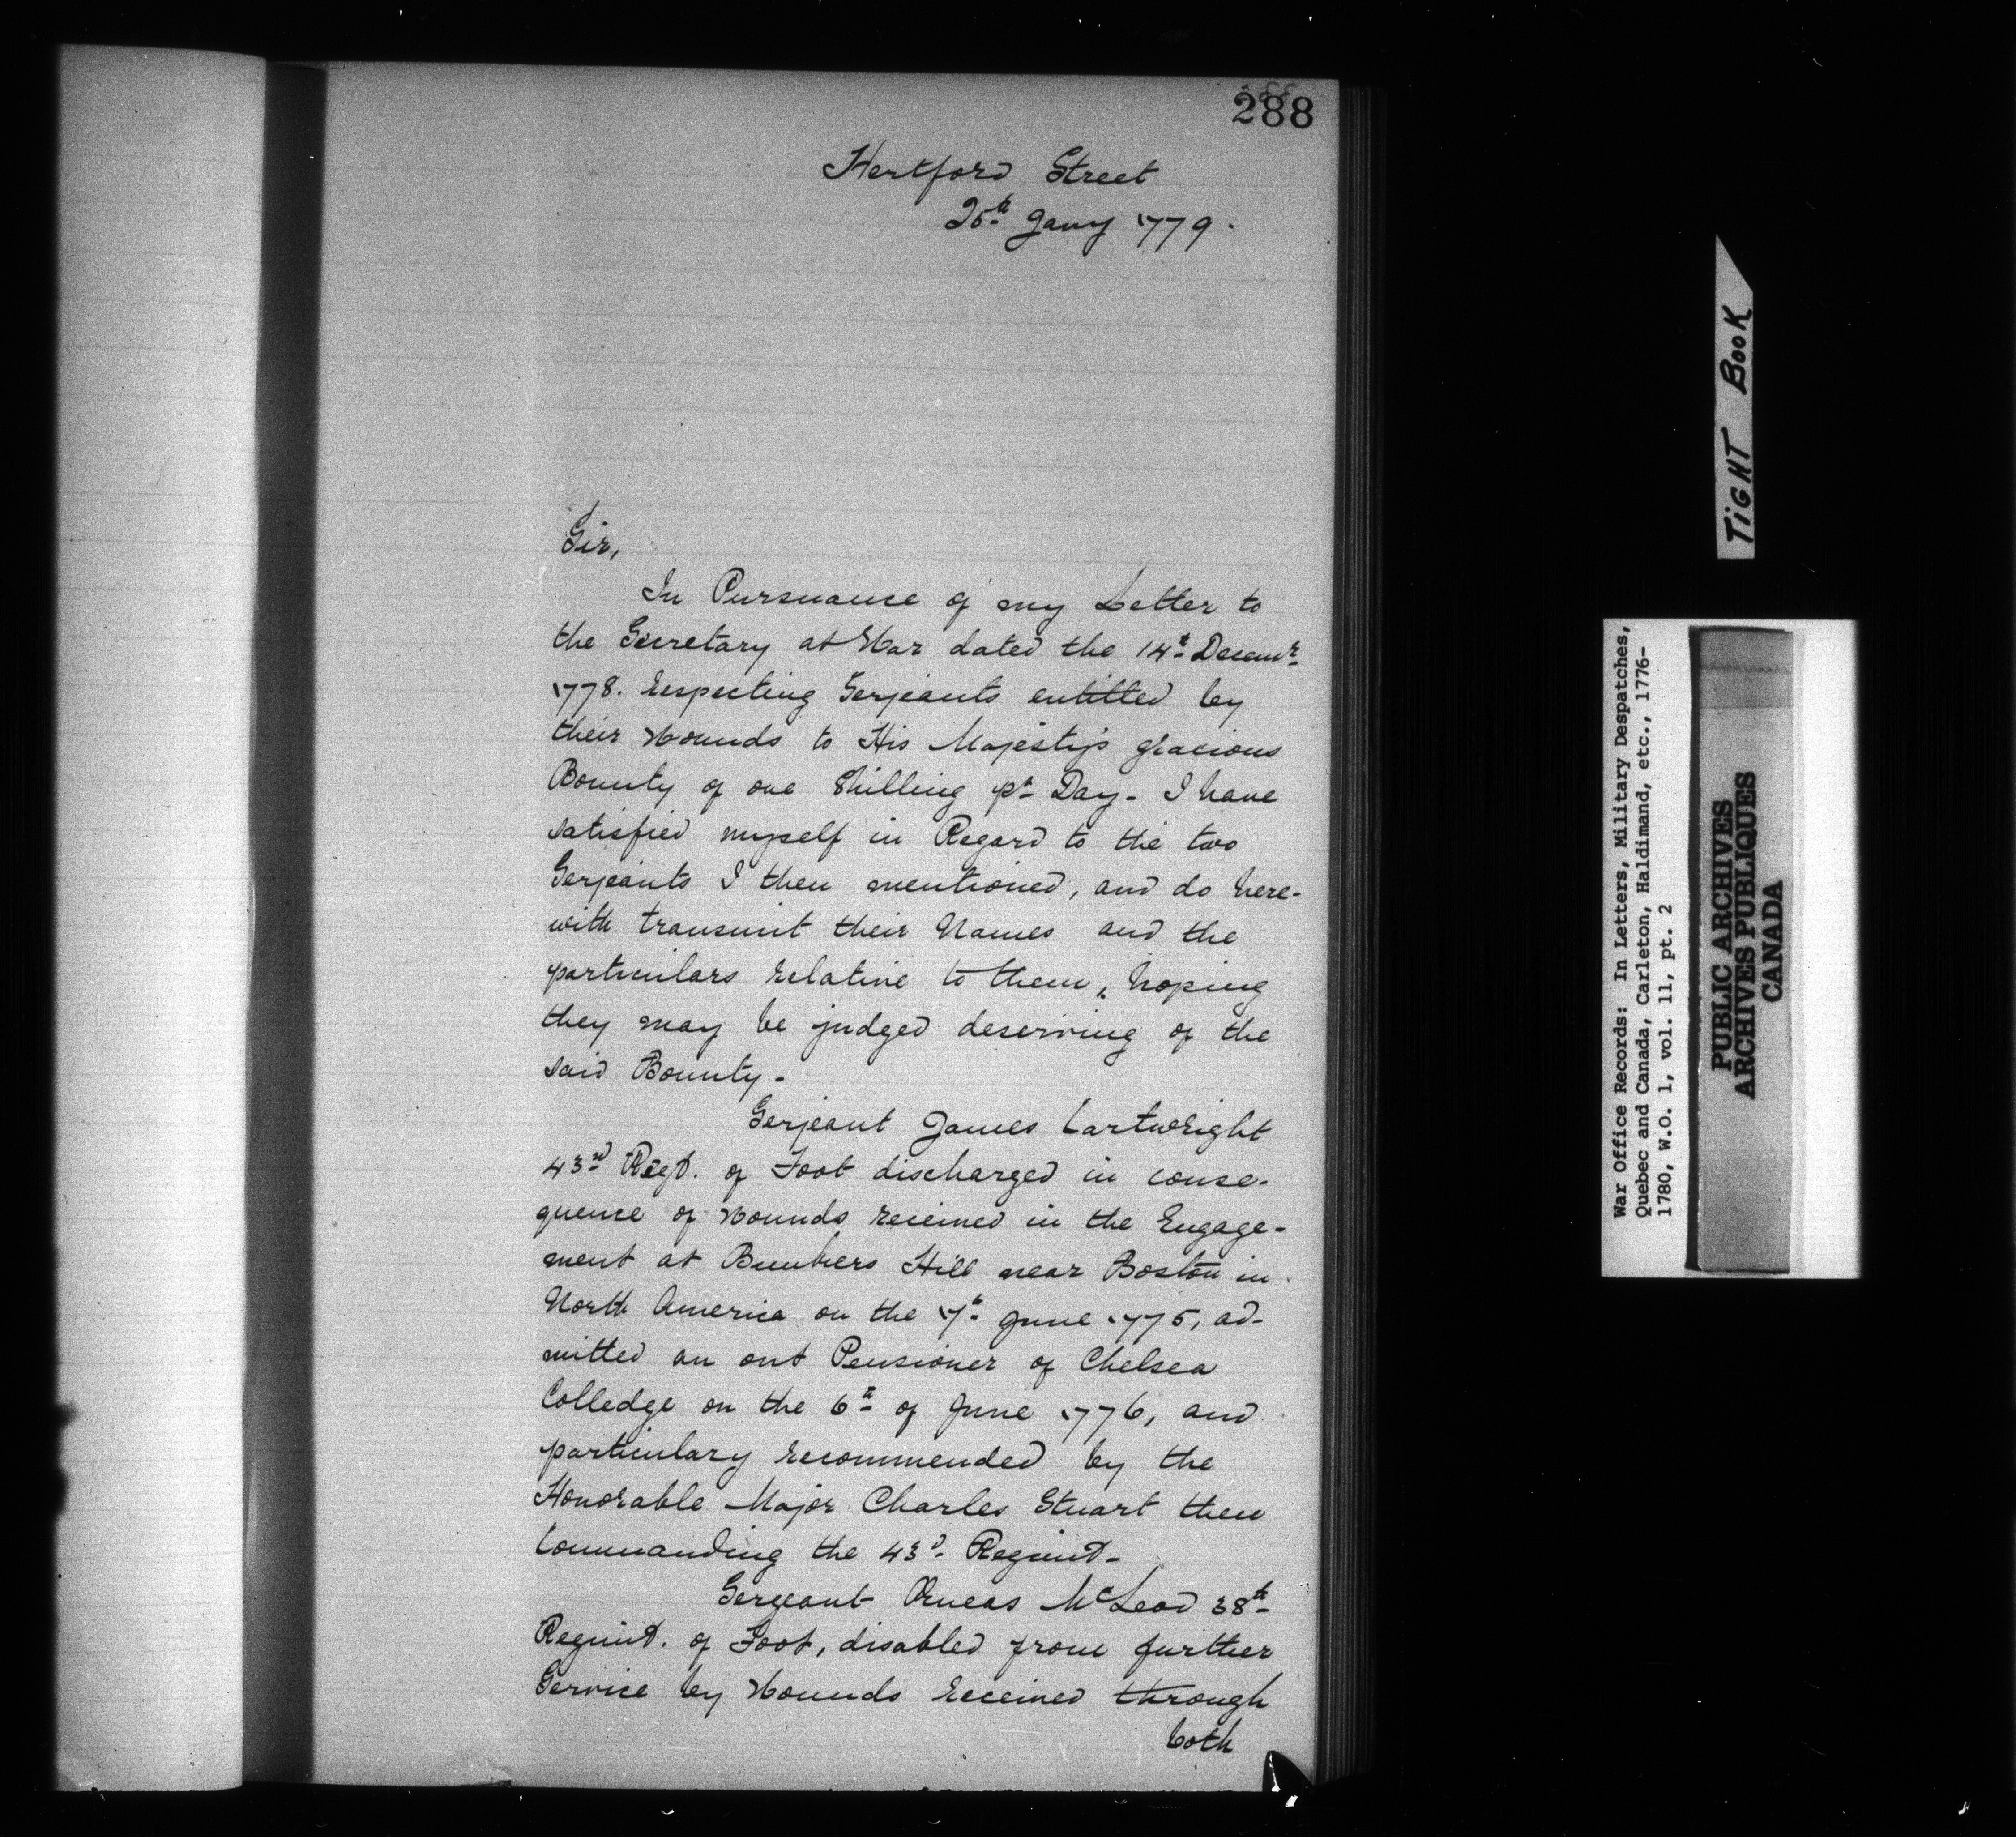 288
Hertford Street
25th Jany 1779.
Sir,
In Pursuance of my Letter to
the Secretary at War dated the 14th Decemr
1778. respecting Serjeants entitled by
their Wounds to His Majesty's gracious
Bounty of one Shilling pr Day - I have
satisfied myself in Regard to the two
Serjeants I then mentioned, and do here-
with transmit their Names and the
particulars relative to them, hoping
they may be judged deserving of the
said Bounty -
Serjeant James Cartwright
43rd Regt. of Foot discharged in conse-
quence of Wounds received in the Engage-
ment at Bunkers Hill near Boston in
North America on the 17th June 1775, ad-
mitted an out Pensioner of Chelsea
Colledge on the 6th of June 1776, and
particulary recommended by the
Honorable Major Charles Stuart then
Commanding the 43d Regimt -
Serjeant Æneas McLeod 38th
Regimt. of Foot, disabled from further
Service by Wounds received through
both
TIGHT BOOK
War Office Records: In Letters, Military Despatches,
Quebec and Canada, Carleton, Haldimand, etc., 1776-
1780, W.O. 1, vol. 11, pt. 2
PUBLIC ARCHIVES
ARCHIVES PUBLIQUES
CANADA